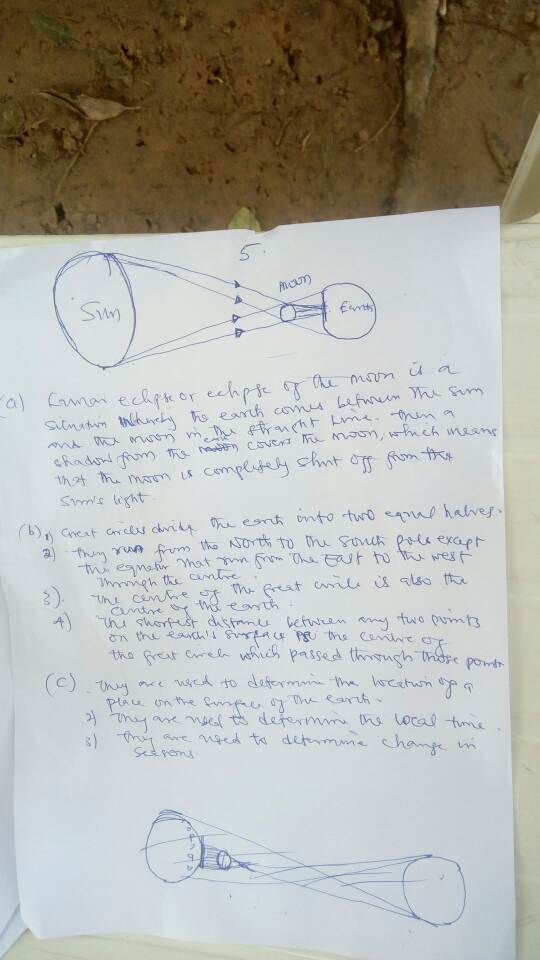 5.
Sun
moon
Earth
(a) Lunar eclipse or eclipse of the moon is a
situation whereby the earth comes between the sun
and the moon in the straight line. Then a
shadow from the earth covers the moon, which means
that the moon is completely shut off from the
sun's light.
(b) 1) Great circles divide the earth into two equal halves.
2) They run from the North to the South pole except
the equator that run from the East to the west
through the centre.
3). The centre of the great circle is also the
centre of the earth.
4) The shortest distance between any two points
on the earth's surface is the centre of
the great circle which passed through those points
(c) They are used to determine the location of a
place on the surface of the earth.
2) They are used to determine the local time.
3) They are used to determine change in
seasons.